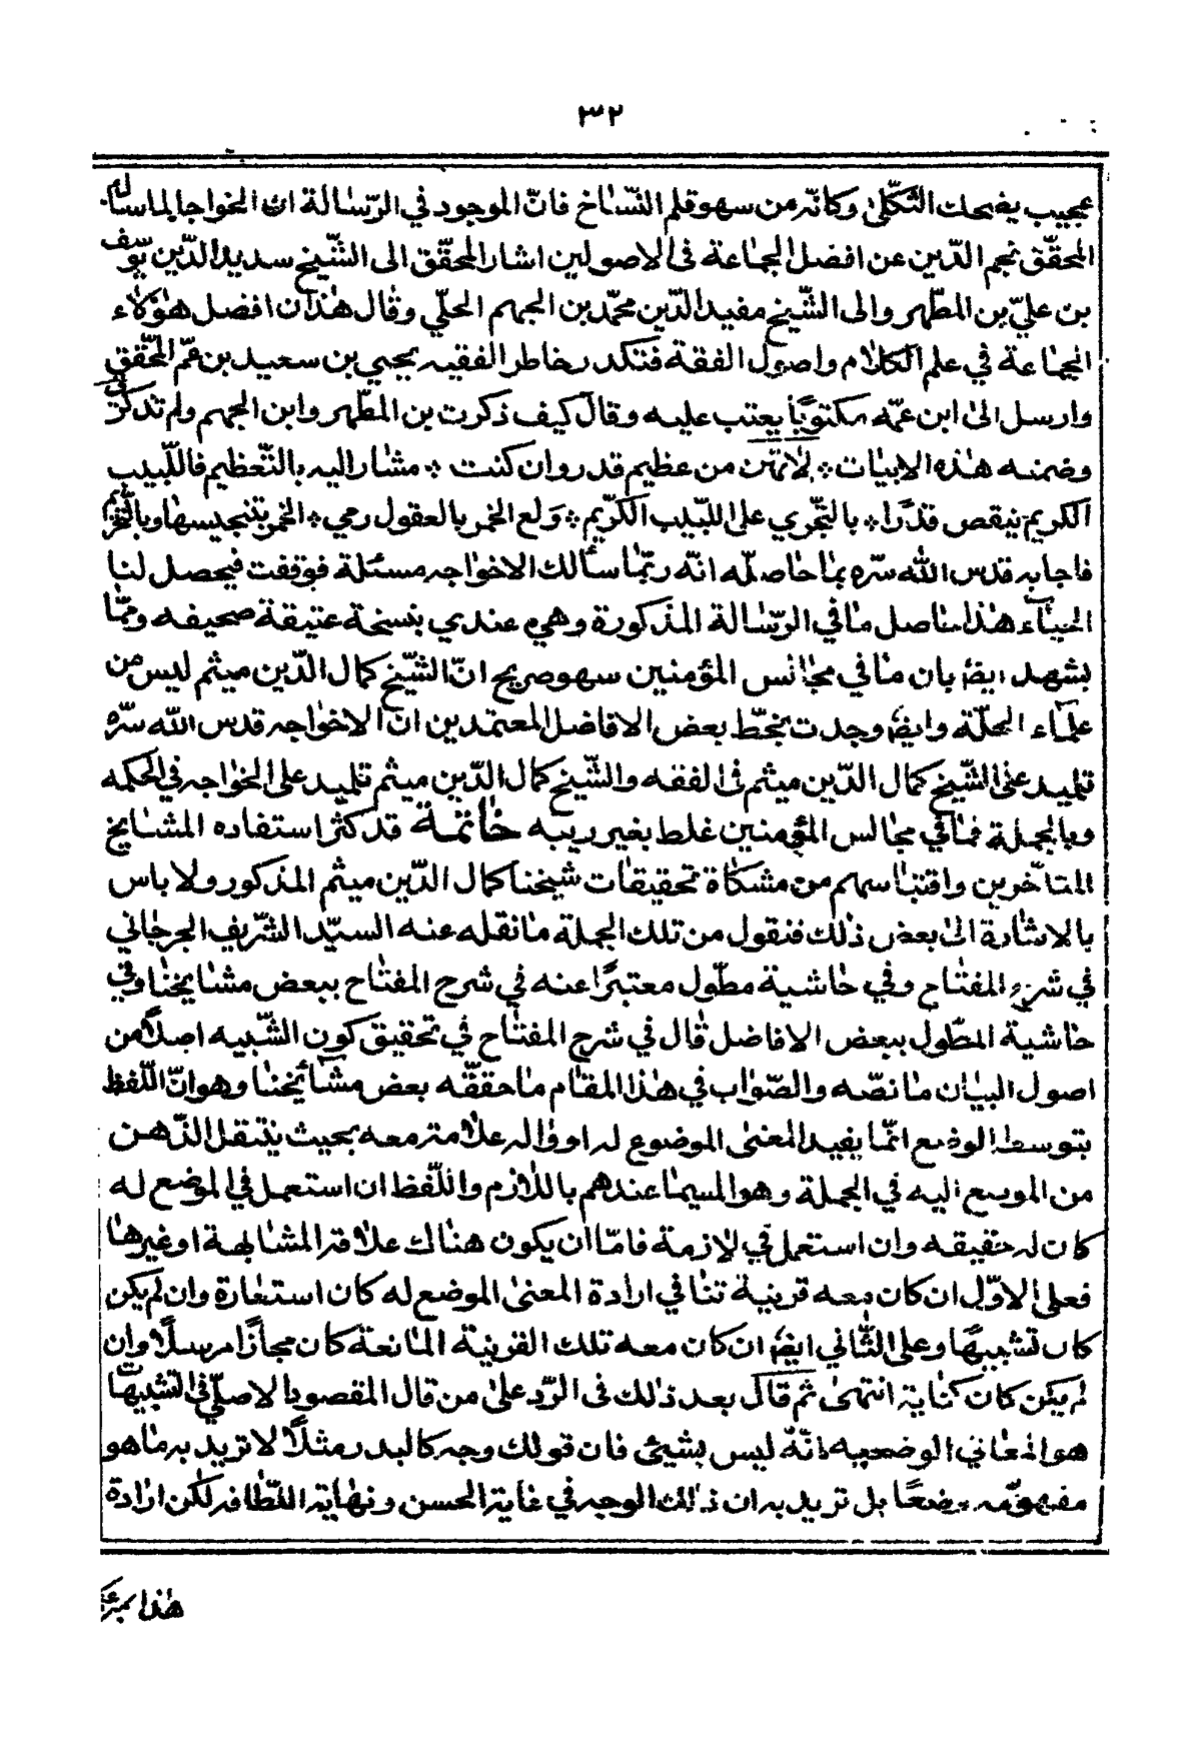 ٣٢
عجيب يضحك الثكلى وكانّه من سهو قلم النسّاخ فانّ الموجود في الرّسالة ان الخواجا لما سأله
المحقّق نجم الدّين عن افضل الجماعة فى الاصولين اشار المحقّق الى الشّيخ سديد الدّين يوسف
بن عليّ بن المطّهر والى الشّيخ مفيد الدّين محمّد بن الجهم الحلّي وقال هذان افضل هؤلاء
الجماعة في علم الكلام واصول الفقة فتكدر خاطر الفقيه يحيي بن سعيد بن عمّ المحقّق
وارسل الى ابن عمّه مكتوبًا يعتب عليه وقال كيف ذكرت بن المطّهر وابن الجهم ولم تذكرنى
وضمنه هذه الابيات * لاتهن من عظيم قدر وان كنت * مشار اليه بالتّعظيم فاللّبيب
الكريم ينقص قدرًا * بالتّجري على اللبّيب الكريم * وَلع الخمر بالعقول رمي * الخمر بتنجيسها وبالتّحريم
فاجابه قدس الله سّره بما حاصلّه انّه ربّما سألك الاخواجه مسئلة فوقفت فيحصل لنا
الحياء هذا حاصل ما في الرّسالة المذكورة وهي عندي بنسخة عتيقة صحيفه وممّا
يشهد ايضا بان ما في مجانس المؤمنين سهو صريح انّ الشّيخ كمال الدّين ميثم ليس من
علماء الحلّة وايضا وجدت بخطّ بعض الافاضل المعتمدين انّ الاخواجه قدس الله سّره
تلميد على الشّيخ كمال الدّين ميثم فى الفقه والشّيخ كمال الدّين ميثم تلميد على الخواجه في الحكمه
وبالجملة فما في مجالس المؤمنين غلط بغير ريبه خاتمة قد كثر استفاده المشايخ
المتاخّرين واقتباسهم من مشكاة تحقيقات شيخنا كمال الدّين ميثم المذكور ولا باس
بالاشارة الى بعض ذلك فنقول من تلك الجملة ما نقله عنه السيّد الشّريف الجرجاني
في شرح المفتاح وفي حاشية مطّول معتبرًا عنه في شرح المفتاح ببعض مشايخنا وفي
حاشية المطّول ببعض الافاضل قال في شرح المفتاح في تحقيق كون الشّبيه اصلًا من
اصول البيان ما نصّه والصّواب في هذا المقام ما حققّه بعض مشائخنا وهو انّ اللّفظ
بتوسط الوضع انّما يفيد المعنى الموضوع له او واله علامته معه بحيث ينتقل الذّهن
من الموضع اليه في الجملة وهو المسيما عندهم باللازم واللّفظ ان استعمل في الموضع له
كان له حقيقه وان استعمل في لازمة فامّا ان يكون هناك علاقه المشابهة او غيرها
فعلى الاوّل ان كان معه قرينية تنافي ارادة المعنى الموضع له كان استعارة وان لم يكن
كان تشبيهًا وعلى الثّاني ايضا ان كان معه تلك القرينية المانعة كان مجازًا مرسلًا وان
لم يكن كان كناية انتهى ثم قال بعد ذلك فى الرّد على من قال المقصود الاصلّي فى التشبيهات
هو المعاني الوضعيه انّه ليس بشيئ فان قولك وجه كالبدر مثلًا لا تريد به ما هو
مفهومه وضعًا بل تريد به ان ذلك الوجه في غاية الحسن ونهاية اللّطافه لكن ارادة
هذا